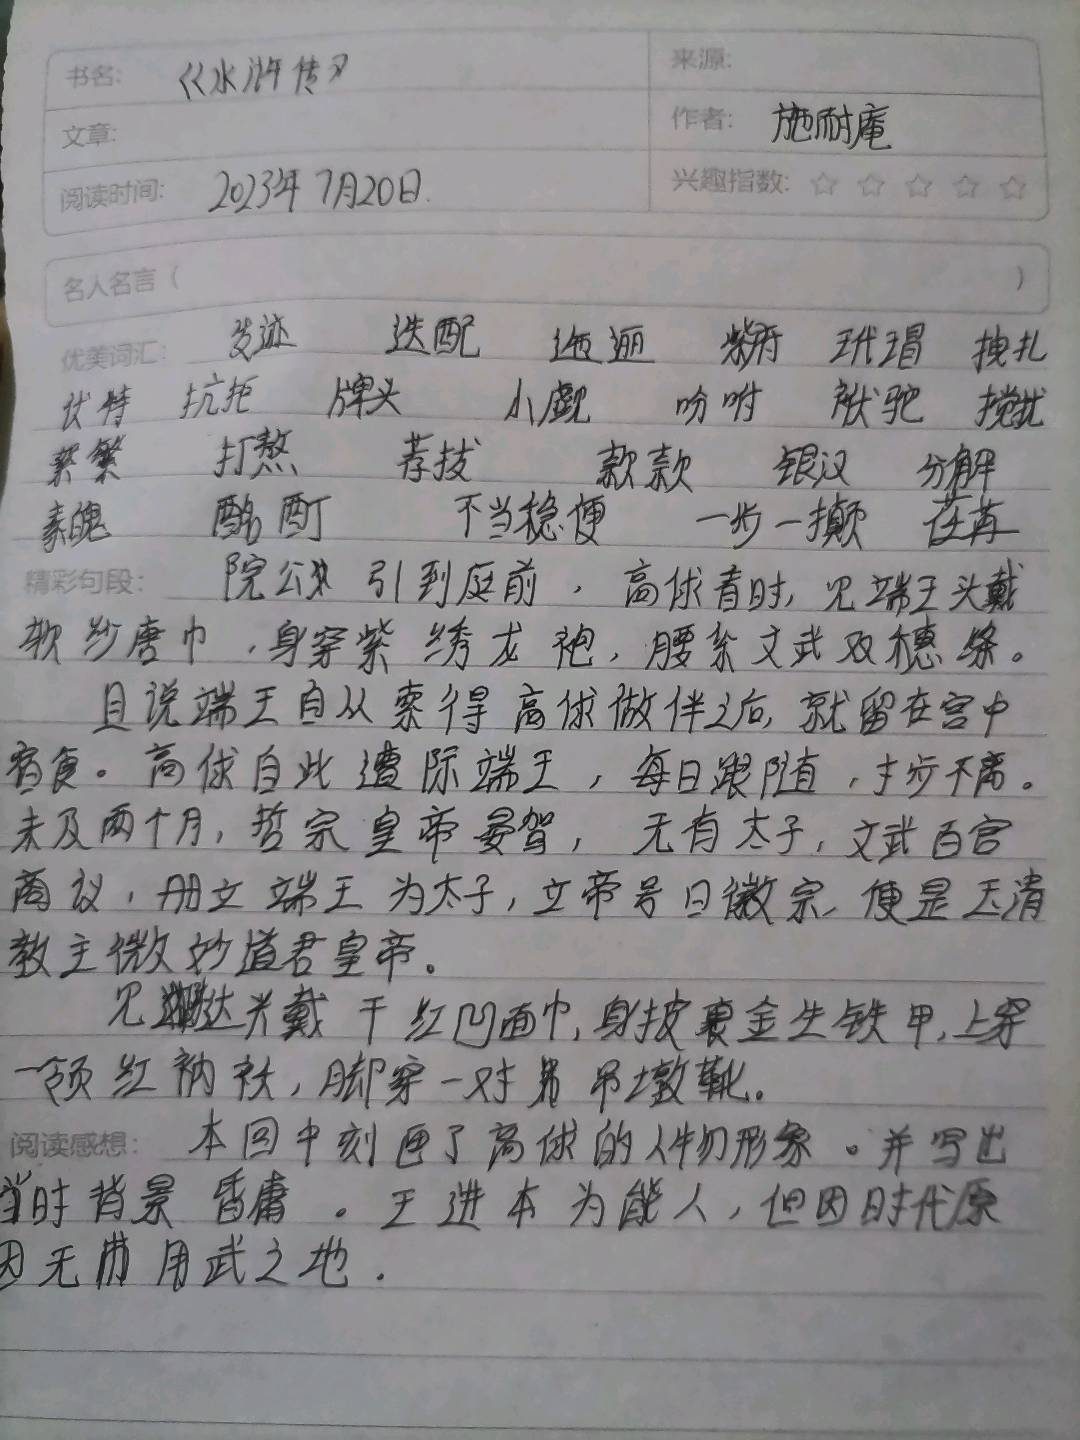 书名: 《水浒传》
来源:
文章:
作者: 施耐庵
阅读时间: 2023年7月20日.
兴趣指数: ☆ ☆ ☆ ☆ ☆
名人名言 ( )
优美词汇: 发迹 迭配 迤逦 紫府 玳瑁 拽扎
伏特 抗拒 牌头 小觑 吩咐 馱驼 搅扰
絮繁 打熬 荐拔 款款 银汉 分解
素魄 酩酊 不当稳便 一步一攧 荏苒
精彩句段: 院公 引到庭前，高俅看时，见端王头戴
软纱唐巾，身穿紫绣龙袍，腰系文武双穗绦。
且说端王自从索得高俅做伴之后，就留在宫中
宿食。高俅自此遭际端王，每日跟随，寸步不离。
未及两个月，哲宗皇帝晏驾，无有太子，文武百官
商议，册立端王为太子，立帝号曰徽宗，便是玉清
教主微妙道君皇帝。
见 达头戴干红凹面巾，身披裹金生铁甲，上穿
一领红衲袄，脚穿一对吊墩靴。
阅读感想: 本回中刻画了高俅的人物形象。并写出
当时背景昏庸。王进本为能人，但因时代原
因无 用武之地.